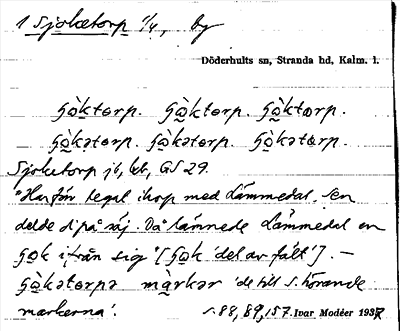 1 Sjoketorp 1/4, by
Döderhults sn, Stranda hd, Kalm. l.
ɧòktorp. ɧòktorp. ɧòktorp.
ɧòkətorp. ɧòkətorp. ɧòkətorp.
Sjoketorp jb, kb, GS 29.
"Har för legat ihop med Lämmedal. Sen
delde di på säj. Då lämnede Lämmedal en
ɧok ifrån sig" [ɧok 'del av fält']. —
ɧòkətorpə màrkər 'de till S. hörande
markerna'.
s. 88, 89, 157. Ivar Modéer 1937